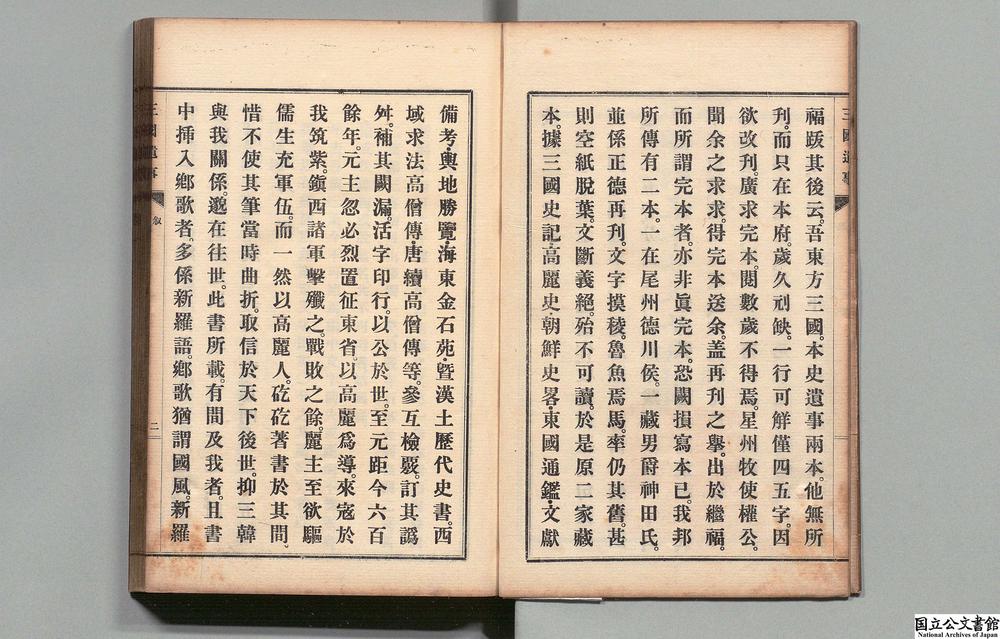 三國遺事
福跋其後云。吾東方三國。本史遺事兩本。他無所
刋。而只在本府。歲久刓缺。一行可解僅四五字。因
欲改刋。廣求完本。閱數歲不得焉。星州牧使權公。
聞余之求。求得完本送余。盖再刋之擧。出於繼福。
而所謂完本者。亦非眞完本。恐闕損寫本已。我邦
所傳有二本。一在尾州德川侯。一藏男爵神田氏。
並係正德再刋。文字摸稜。魯魚焉馬。率仍其舊。甚
則空紙脫葉。文斷義絕。殆不可讀。於是原二家藏
本。據三國史記・高麗史・朝鮮史畧・東國通鑑・文獻
備考・輿地勝覽・海東金石苑・曁漢土歷代史書。西
域求法高僧傳・唐續高僧傳等。參互檢覈。訂其譌
舛。補其闕漏。活字印行。以公於世。至元距今六百
餘年。元主忽必烈置征東省。以高麗爲導。來寇於
我筑紫。鎭西諸軍擊殲之。戰敗之餘。麗主至欲驅
儒生充軍伍。而一然以高麗人。矻矻著書於其間、
惜不使其筆當時曲折。取信於天下後世。抑三韓
與我關係。邈在往世。此書所載。有間及我者。且書
中挿入鄕歌者。多係新羅語。鄕歌猶謂國風。新羅
三國遺事
叙
二
国立公文書館
National Archives of Japan